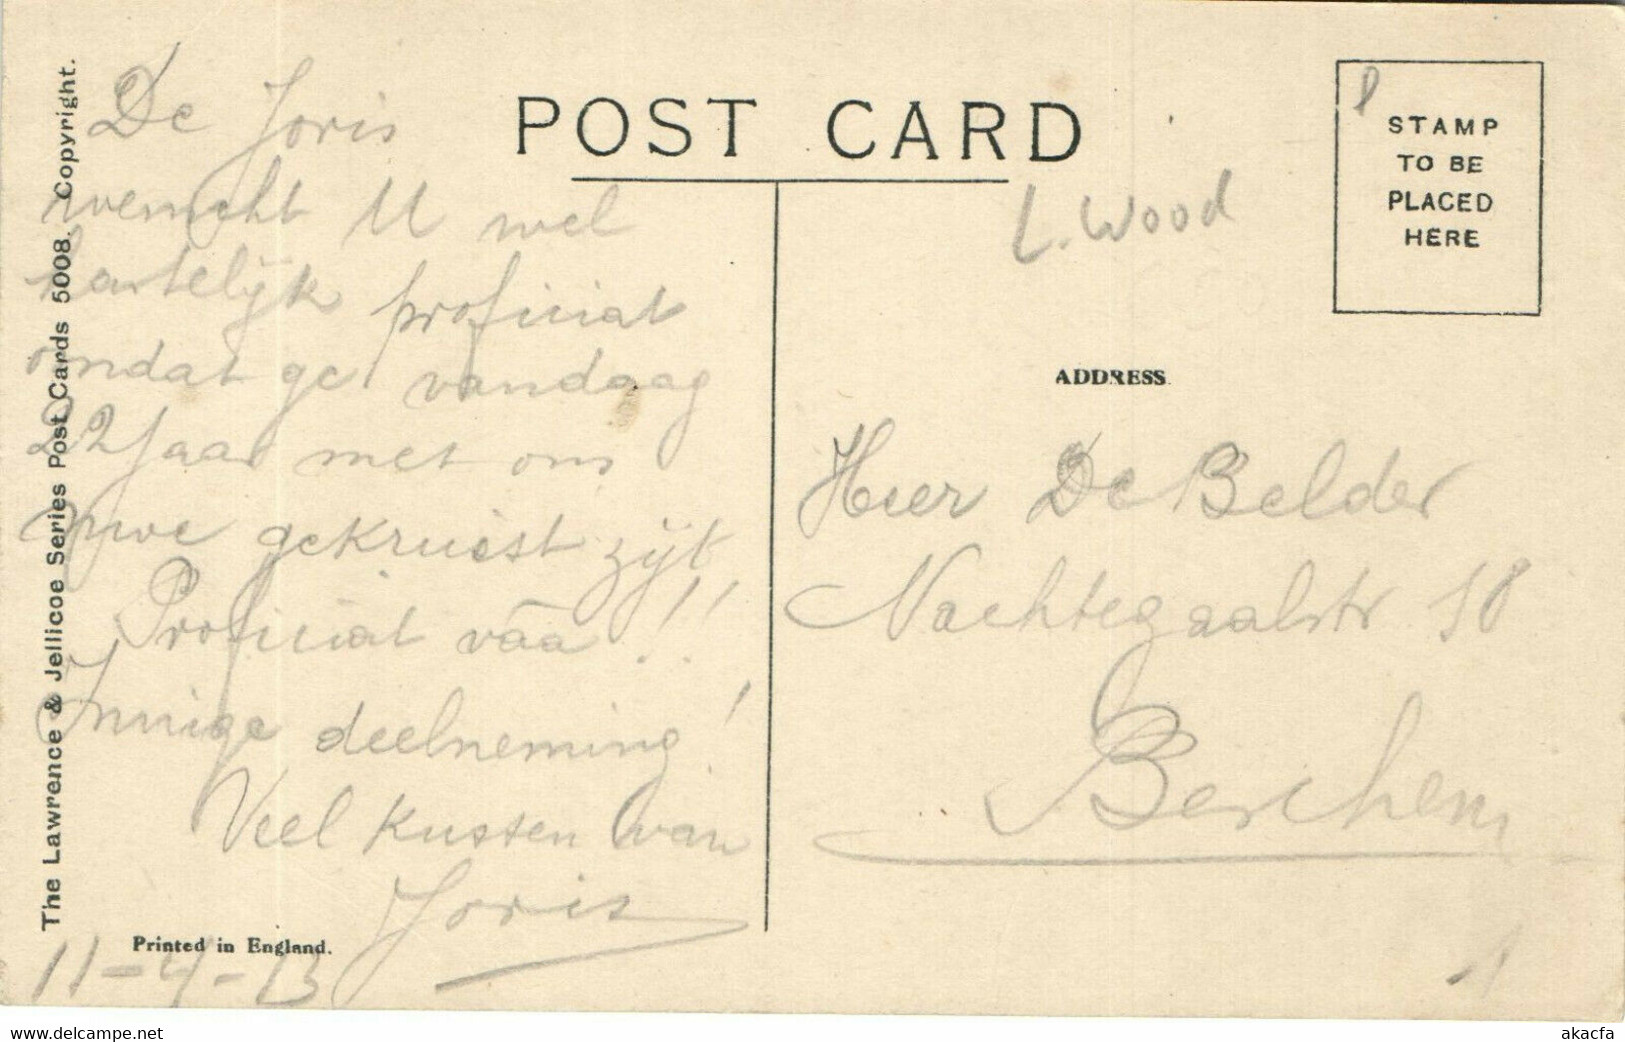 The Lawrence & Jellicoe Series Post Cards 5008. Copyright.
De Joris
wenscht U wel
hartelijk proficiat
omdat ge vandaag
22 Jaar met ons
moe gekruist zijt
Proficiat vaa!!!
Innige deelneming!
Veel kussen van
Joris
Printed in England.
11-4-13
POST CARD
L. Wood
STAMP
TO BE
PLACED
HERE
ADDRESS.
Heer De Belder
Nachtegaalstr 18
Berchem
1
www.delcampe.net
akacfa